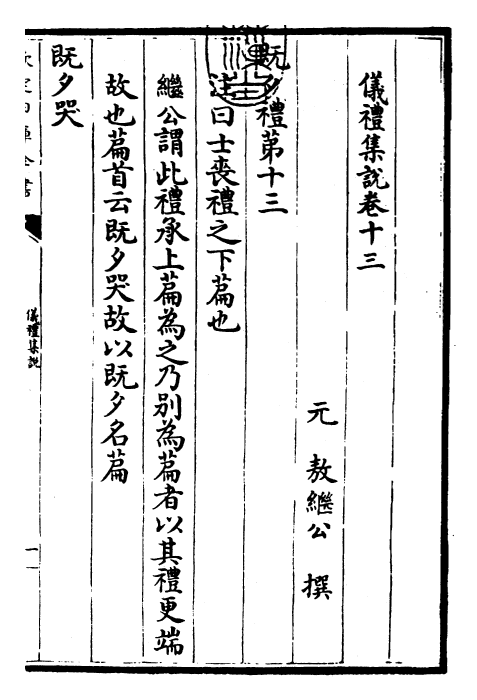 儀禮集說卷十三
元 敖繼公 撰
既夕禮第十三
注曰士喪禮之下篇也
繼公謂此禮承上篇為之乃別為篇者以其禮更端
故也篇首云既夕哭故以既夕名篇
既夕哭
儀禮集說
一